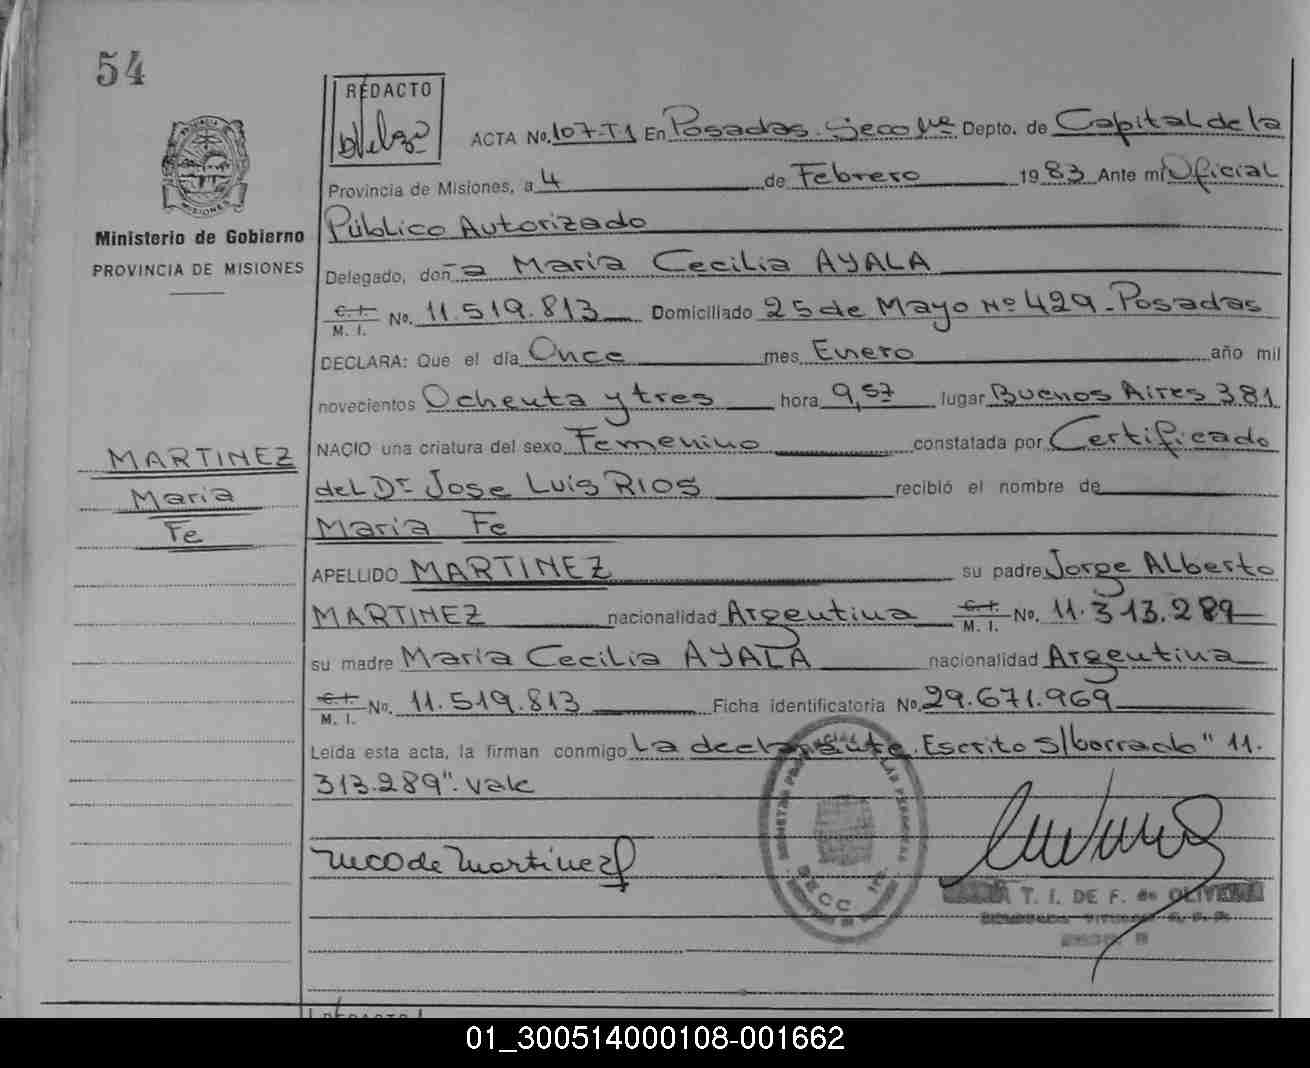 54
REDACTO
ACTA No. 107-T1 En Posadas. Secc 1ra Depto. de Capital de la
Provincia de Misiones, a 4 de Febrero 1983 Ante mi Oficial
Público Autorizado
Ministerio de Gobierno
PROVINCIA DE MISIONES
Delegado, don~a Maria Cecilia AYALA
C. I.
M. I. No. 11.519.813 Domiciliado 25 de Mayo Nº 429-Posadas
DECLARA: Que el día Once mes Enero año mil
novecientos Ochenta y tres hora 9,57 lugar Buenos Aires 381
NACIO una criatura del sexo Femenino constatada por Certificado
MARTINEZ
Maria
Fe
del Dr Jose Luis RIOS recibió el nombre de
Maria Fe
APELLIDO MARTINEZ su padre Jorge Alberto
MARTINEZ nacionalidad Argentina C. I.
M. I. No. 11.313.289
su madre Maria Cecilia AYALA nacionalidad Argentina
C. I.
M. I. No. 11.519.813 Ficha identificatoria No. 29.671.969
Leída esta acta, la firman conmigo La declarante. Escrito s/borrado "11.
313.289". vale
de Martinez
SECC. 1ra.
T. I. DE F. de OLIVEIRA
REDACTO
01_300514000108-001662